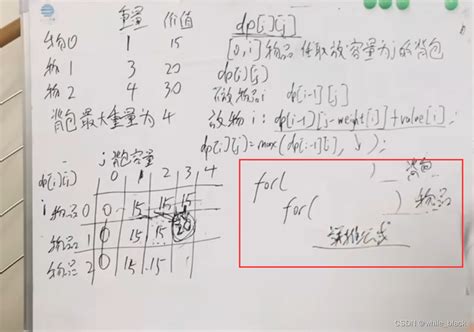 重量 价值
物品0 1 15
物1 3 20
物2 4 30
背包最大重量为4
dp[i][j]
[0,i]物品任取放容量为j的背包
dp[i][j]
不放物品i dp[i-1][j]
放物品i: dp[i-1][j-weight[i]]+value[i]
dp[i][j]=max(dp[i-1][j], );
j背包容量
dp[i][j] 0 1 2 3 4
i 物品0 0 15 15 15
物品1 0 15
物品2 0 15 15
for( ) 背包
for( ) 物品
递推公式
CSDN